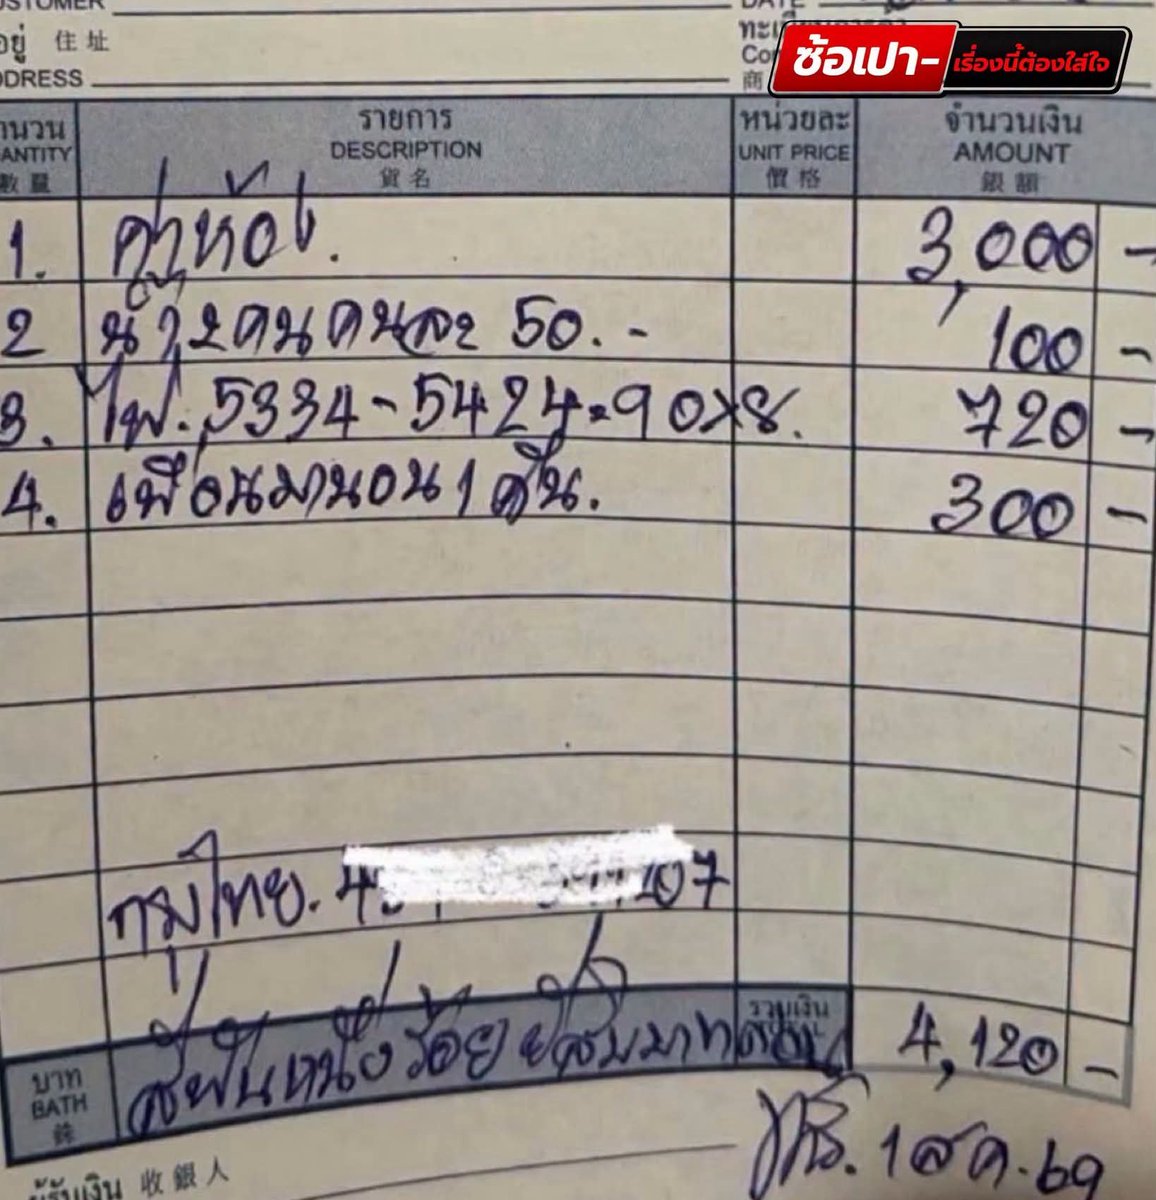 CUSTOMER
DATE
อยู่ 住址
ADDRESS
ทะเบียนการค้า
Com
商
ซ้อเปา-
เรื่องนี้ต้องใส่ใจ
จำนวน รายการ หน่วยละ จำนวนเงิน
QUANTITY DESCRIPTION UNIT PRICE AMOUNT
數量 貨名 價格 銀額
1. ค่าห้อง. 3,000 -
2 น้ำ 2 คน คนละ 50.- 100 -
3. ไฟ. 5334-5424=90x8. 720 -
4. เพื่อนมานอน 1 คืน. 300 -
กรุงไทย. 4 07
รวมเงิน
TOTAL
บาท
BATH
銖
สี่พันหนึ่งร้อยยี่สิบบาทถ้วน 4,120 -
ผู้รับเงิน 收銀人
1 ส.ค. 69